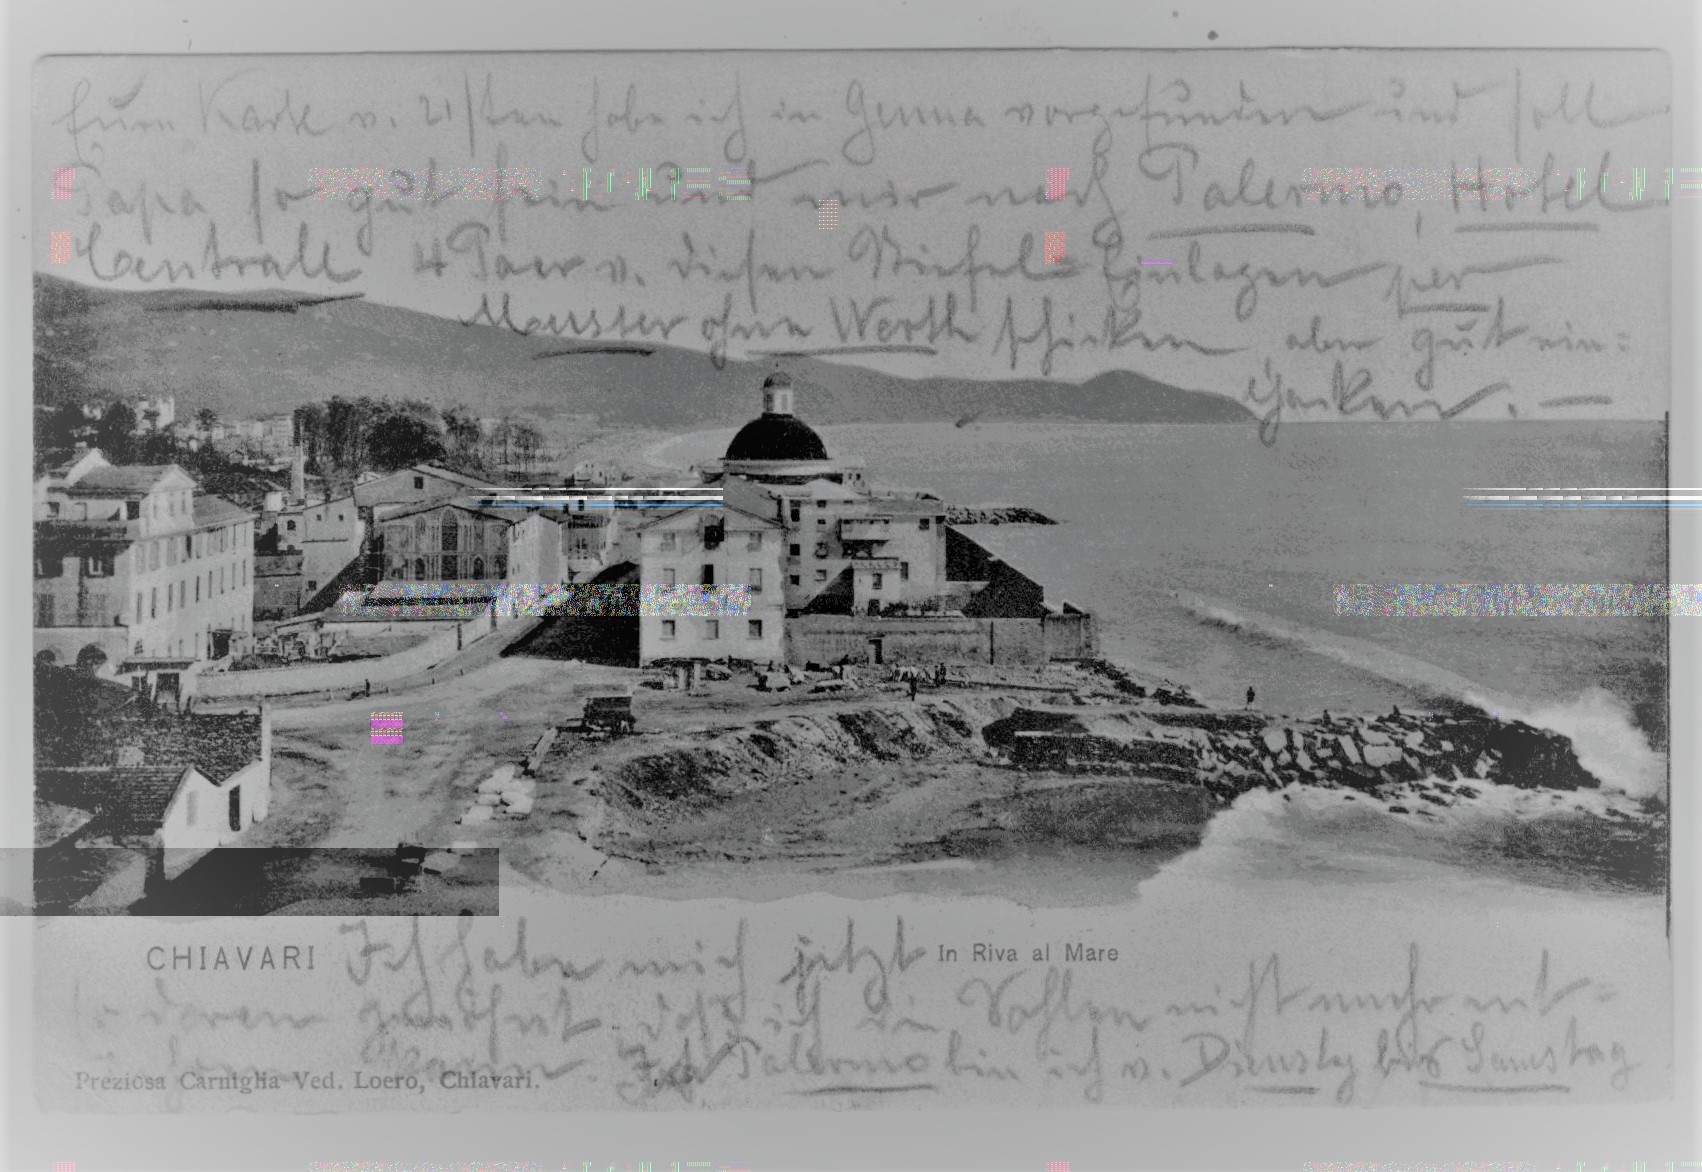 Eure Karte v. 21sten habe ich in Genua vorgefunden und soll
Papa so gut sein und mir nach Palermo, Hotel
Centrale 4 Paar v. diesen Stiefel-Einlagen per
Muster ohne Werth schicken, aber gut ein=
packen. —
CHIAVARI
Ich habe mich jetzt
In Riva al Mare
so daran gewöhnt, daß ich die Sohlen nicht mehr ent=
kann. In Palermo bin ich v. Dienstg bis Samstag
Preziosa Carniglia Ved. Loero, Chiavari.